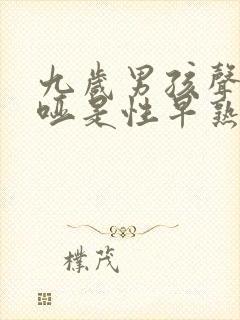 九歲男孩聲
啞是性早熟
樸茂